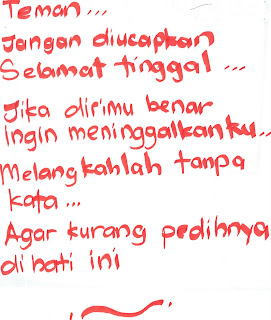 Teman...
Jangan diucapkan
Selamat tinggal ...
Jika dirimu benar
ingin meninggalkanku..
Melangkahlah tanpa
kata...
Agar kurang pedihnya
di hati ini